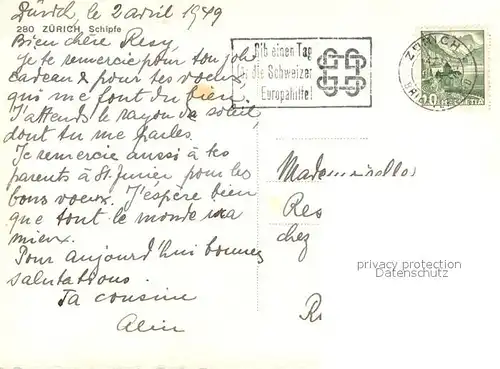 Zürich, le 2 avril 1949
280 ZÜRICH, Schipfe
Bien chère Resy,
Je te remercie pour ton joli
cadeau & pour tes voeux,
qui me font du bien.
J'attends le rayon de soleil,
dont tu me parles.
Je remercie aussi à tes
parents à St. Junien pour les
bons voeux. J'espère bien
que tout le monde ira
mieux.
Pour aujourd'hui bonnes
salutations.
Ta cousine
Gib einen Tag
für die Schweizer
Europahilfe!
ZÜRICH
HELVETIA
Mademoiselles
Res
chez
privacy protection
Datenschutz